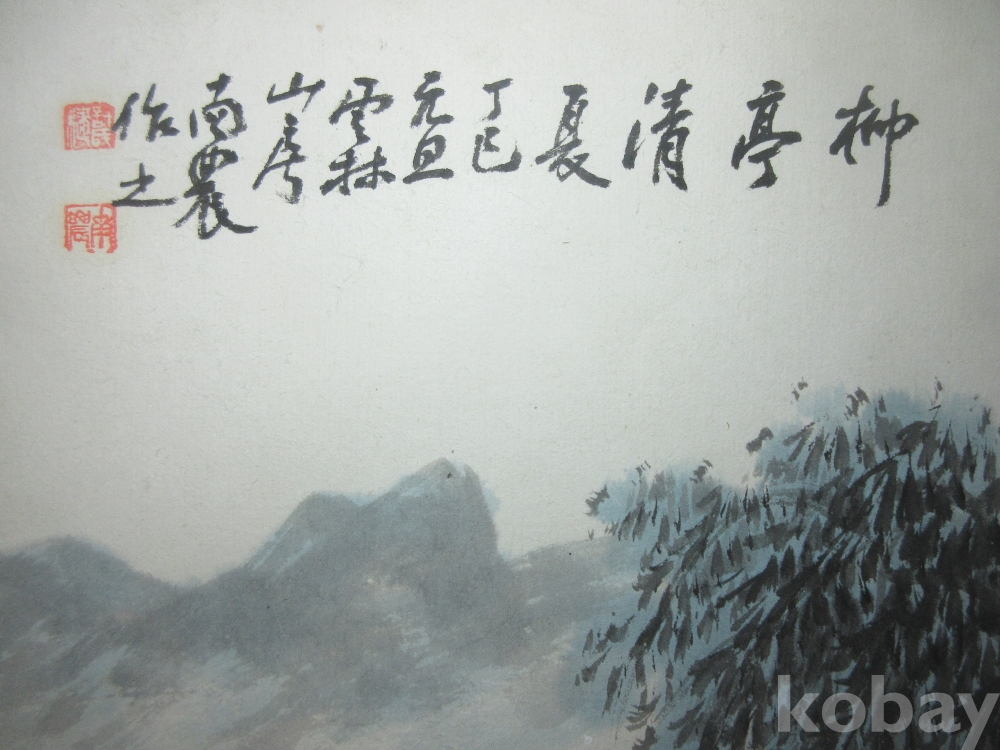 柳
亭
清
夏
丁巳
元旦
雲林
山房
南農
作之
南農
kobay